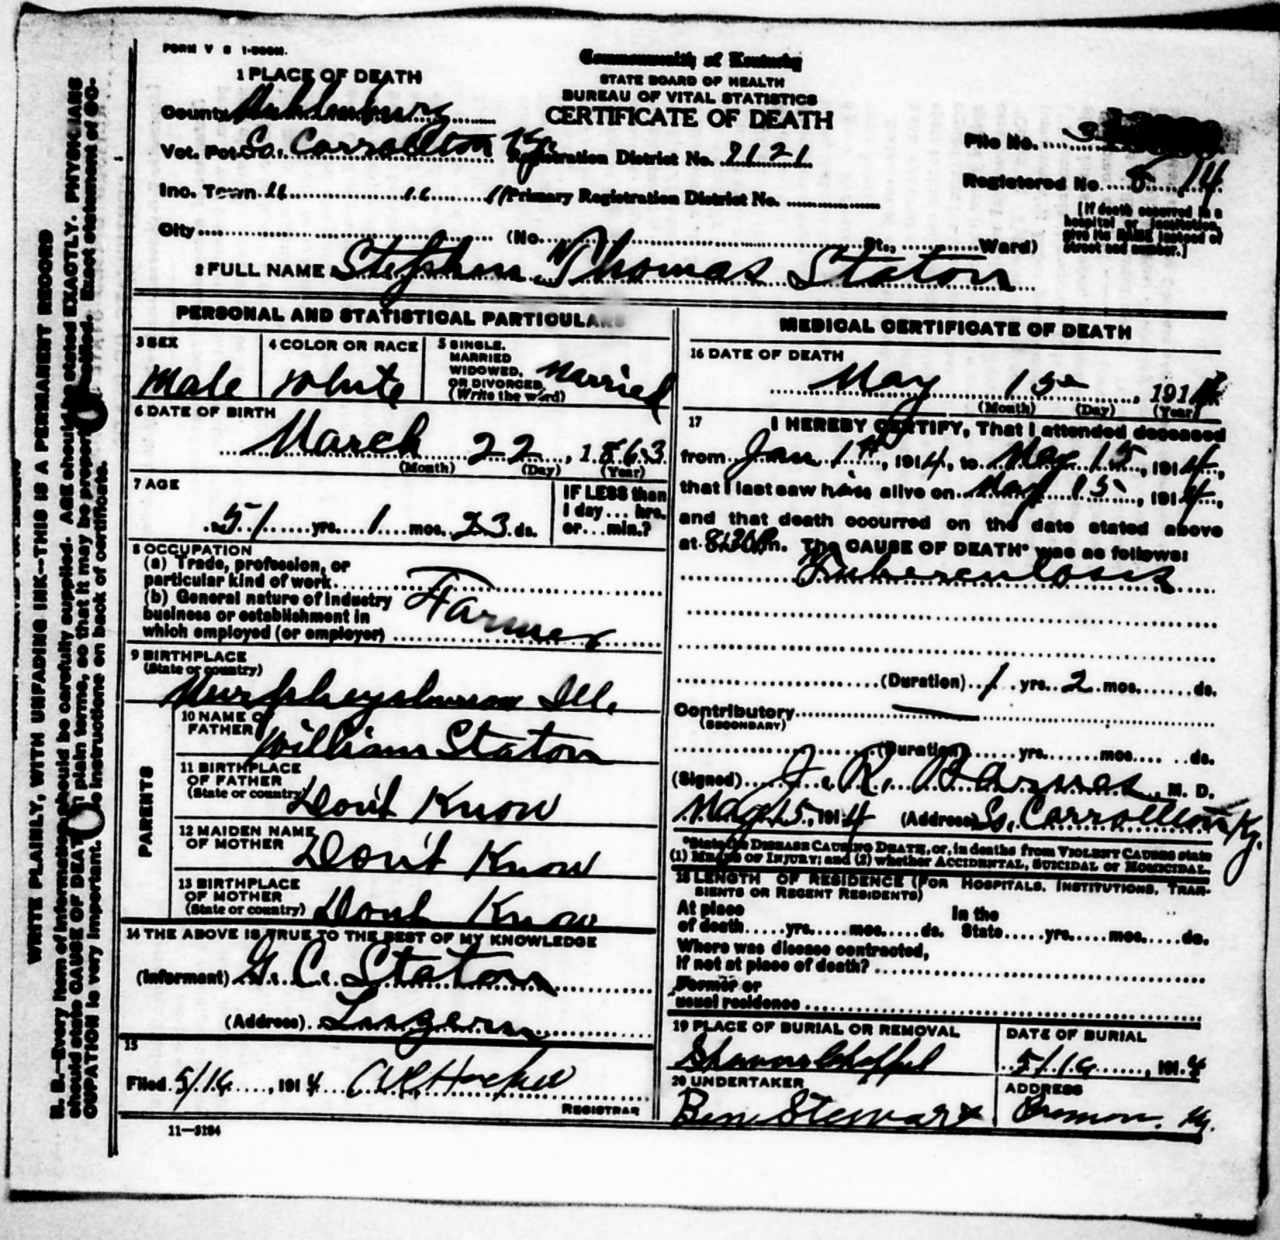 FORM V S 1-500M.
Commonwealth of Kentucky
STATE BOARD OF HEALTH
BUREAU OF VITAL STATISTICS
CERTIFICATE OF DEATH
1 PLACE OF DEATH
County Muhlenburg
Vot. Pct. So. Carrollton Ky. Registration District No. 7121
File No.
Inc. Town " " " Primary Registration District No.
Registered No. 14
[If death occurred in a hospital or institution, give its NAME instead of street and number.]
City (No. St., Ward)
2 FULL NAME Stephen Thomas Staton
PERSONAL AND STATISTICAL PARTICULARS
3 SEX
Male
4 COLOR OR RACE
White
5 SINGLE, MARRIED WIDOWED, OR DIVORCED (Write the word)
Married
6 DATE OF BIRTH
March 22, 1863
(Month) (Day) (Year)
7 AGE
51 yrs. 1 mos. 23 ds.
IF LESS than 1 day... hrs. or... min.?
8 OCCUPATION
(a) Trade, profession, or particular kind of work
(b) General nature of industry business or establishment in which employed (or employer)
Farmer
9 BIRTHPLACE
(State or country)
Murpheysburow Ill.
PARENTS
10 NAME OF FATHER
William Staton
11 BIRTHPLACE OF FATHER (State or country)
Don't Know
12 MAIDEN NAME OF MOTHER
Don't Know
13 BIRTHPLACE OF MOTHER (State or country)
Dont Know
14 THE ABOVE IS TRUE TO THE BEST OF MY KNOWLEDGE
(Informant) G. C. Staton
(Address)
15
Filed 5/16, 1914
REGISTRAR
11-5184
MEDICAL CERTIFICATE OF DEATH
16 DATE OF DEATH
May 15, 1914
(Month) (Day) (Year)
17 I HEREBY CERTIFY, That I attended deceased
from Jan 1st, 1914, to May 15, 1914,
that I last saw him alive on May 15, 1914,
and that death occurred on the date stated above
at 8:30 P m. The CAUSE OF DEATH* was as follows:
Tuberculosis
(Duration) 1 yrs. 2 mos. ds.
Contributory
(SECONDARY)
(Duration) yrs. mos. ds.
(Signed) J. R. Barnes, M. D.
May 15, 1914 (Address) So. Carrollton Ky.
*State the DISEASE CAUSING DEATH, or, in deaths from VIOLENT CAUSES state
(1) MEANS OF INJURY; and (2) whether ACCIDENTAL, SUICIDAL or HOMICIDAL.
18 LENGTH OF RESIDENCE (FOR HOSPITALS, INSTITUTIONS, TRANSIENTS OR RECENT RESIDENTS)
At place of death yrs. mos. ds. In the State yrs. mos. ds.
Where was disease contracted,
if not at place of death?
Former or
usual residence
19 PLACE OF BURIAL OR REMOVAL
DATE OF BURIAL
5/16, 1914
20 UNDERTAKER
Ben Stewart
ADDRESS
Bremen. Ky.
WRITE PLAINLY, WITH UNFADING INK—THIS IS A PERMANENT RECORD
N. B.—Every item of information should be carefully supplied. AGE should be stated EXACTLY. PHYSICIANS
should state CAUSE OF DEATH in plain terms, so that it may be properly classified. Exact statement of OC-
CUPATION is very important. See instructions on back of certificate.